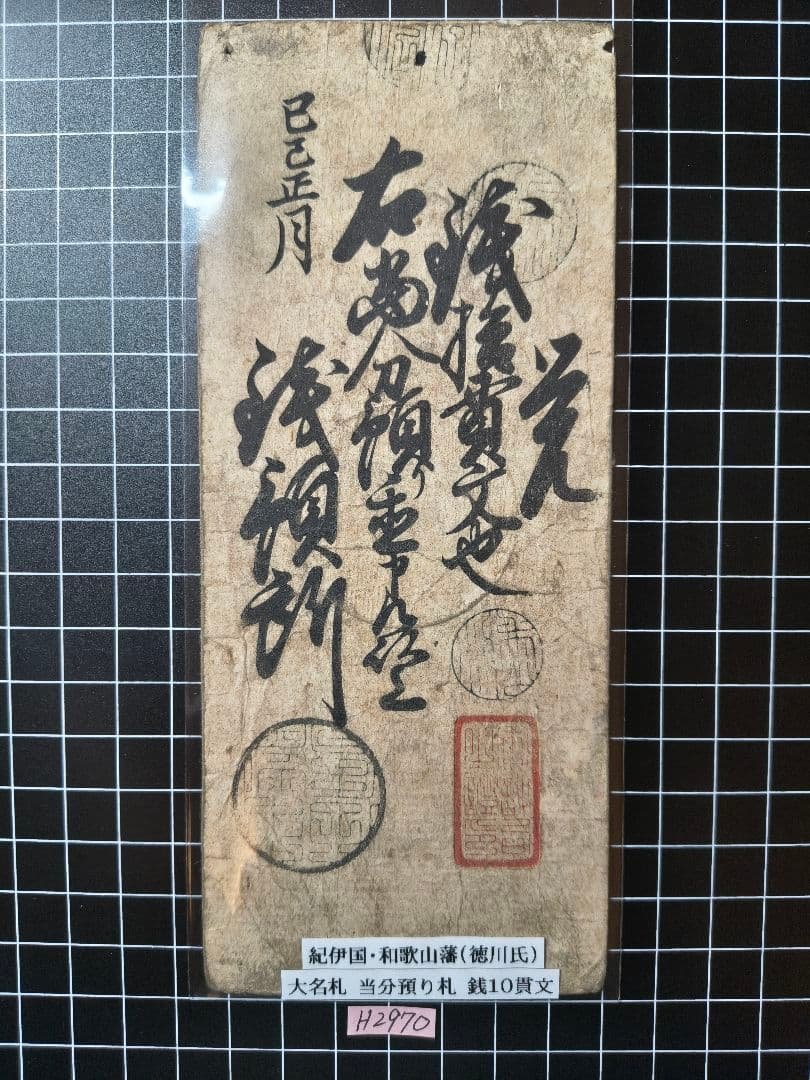 覚
銭拾貫文也
右当分預り置申処
銭預所
巳正月
紀伊国・和歌山藩(徳川氏)
大名札 当分預り札 銭10貫文
H2970